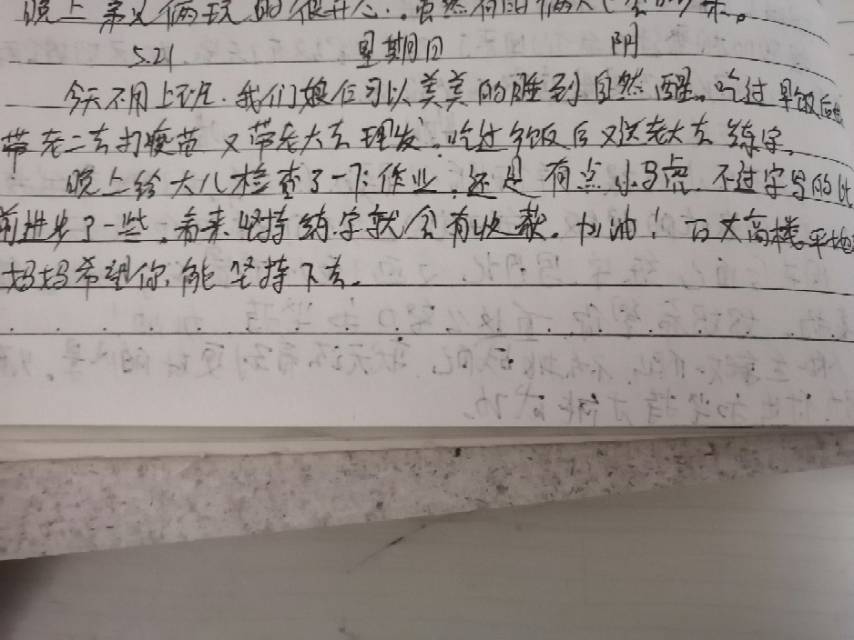 晚上弟兄俩玩的很开心。虽然有时俩人
5.21 星期日 阴
今天不用上班.我们娘仨可以美美的睡到自然醒。吃过早饭后
带老二去打疫苗又带老大去理发。吃过午饭后又送老大去练字。
晚上给大儿检查了一下作业.还是有点小马虎.不过字写的比
前进步了一些.看来坚持练字就会有收获.加油！万丈高楼平地
妈妈希望你能坚持下去.